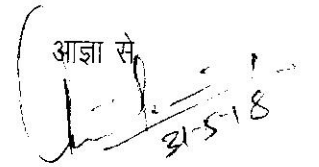 आज्ञा से
31-5-18